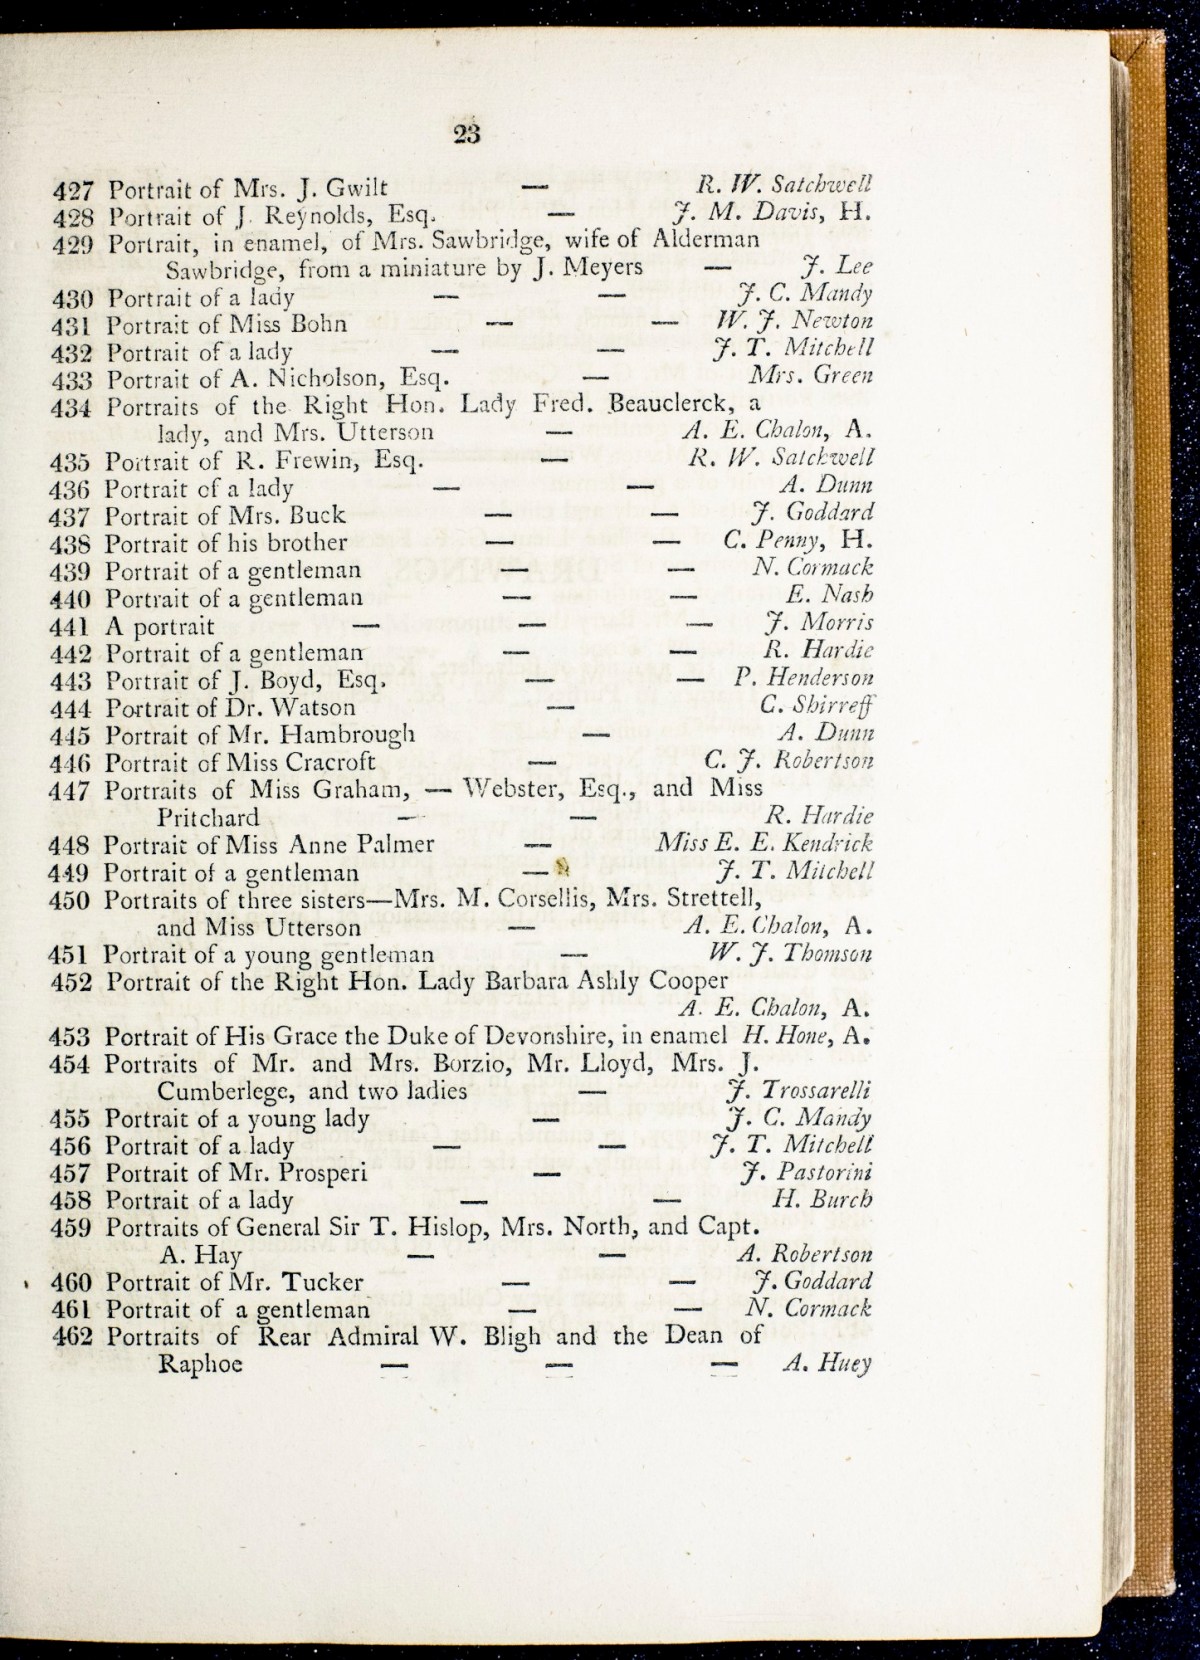 23
427 Portrait of Mrs. J. Gwilt — R. W. Satchwell
428 Portrait of J. Reynolds, Esq. — J. M. Davis, H.
429 Portrait, in enamel, of Mrs. Sawbridge, wife of Alderman
Sawbridge, from a miniature by J. Meyers — J. Lee
430 Portrait of a lady — — J. C. Mandy
431 Portrait of Miss Bohn — — W. J. Newton
432 Portrait of a lady — — J. T. Mitchell
433 Portrait of A. Nicholson, Esq. — Mrs. Green
434 Portraits of the Right Hon. Lady Fred. Beauclerck, a
lady, and Mrs. Utterson — A. E. Chalon, A.
435 Portrait of R. Frewin, Esq. — R. W. Satchwell
436 Portrait of a lady — — A. Dunn
437 Portrait of Mrs. Buck — — J. Goddard
438 Portrait of his brother — — C. Penny, H.
439 Portrait of a gentleman — — N. Cormack
440 Portrait of a gentleman — — E. Nash
441 A portrait — — — J. Morris
442 Portrait of a gentleman — — R. Hardie
443 Portrait of J. Boyd, Esq. — — P. Henderson
444 Portrait of Dr. Watson — C. Shirreff
445 Portrait of Mr. Hambrough — A. Dunn
446 Portrait of Miss Cracroft — C. J. Robertson
447 Portraits of Miss Graham, — Webster, Esq., and Miss
Pritchard — — R. Hardie
448 Portrait of Miss Anne Palmer — Miss E. E. Kendrick
449 Portrait of a gentleman — J. T. Mitchell
450 Portraits of three sisters—Mrs. M. Corsellis, Mrs. Strettell,
and Miss Utterson — A. E. Chalon, A.
451 Portrait of a young gentleman — W. J. Thomson
452 Portrait of the Right Hon. Lady Barbara Ashly Cooper
A. E. Chalon, A.
453 Portrait of His Grace the Duke of Devonshire, in enamel H. Hone, A.
454 Portraits of Mr. and Mrs. Borzio, Mr. Lloyd, Mrs. J.
Cumberlege, and two ladies — J. Trossarelli
455 Portrait of a young lady — J. C. Mandy
456 Portrait of a lady — — J. T. Mitchell
457 Portrait of Mr. Prosperi — J. Pastorini
458 Portrait of a lady — — H. Burch
459 Portraits of General Sir T. Hislop, Mrs. North, and Capt.
A. Hay — — A. Robertson
460 Portrait of Mr. Tucker — — J. Goddard
461 Portrait of a gentleman — — N. Cormack
462 Portraits of Rear Admiral W. Bligh and the Dean of
Raphoe — — — A. Huey